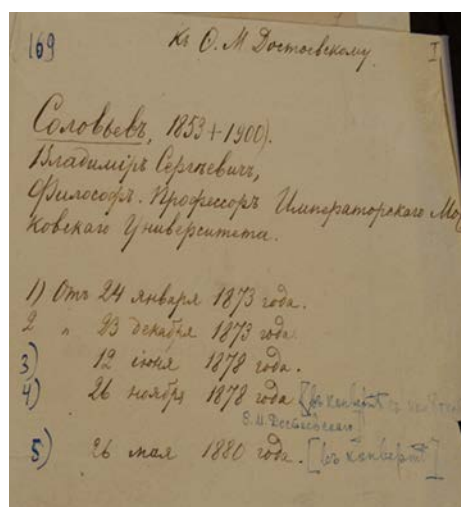 169 Къ Ѳ. М Достоевскому. I
Соловьевъ, 1853+1900).
Владиміръ Сергѣевичъ,
Философъ. Профессоръ Императорскаго Мос
ковскаго Университета.
1) Отъ 24 января 1873 года.
2 „ 23 декабря 1873 года
3) 12 іюня 1878 года.
4) 26 ноября 1878 года [въ конвертѣ съ
Достоевскаго]
5) 26 мая 1880 года. [въ конвертѣ]